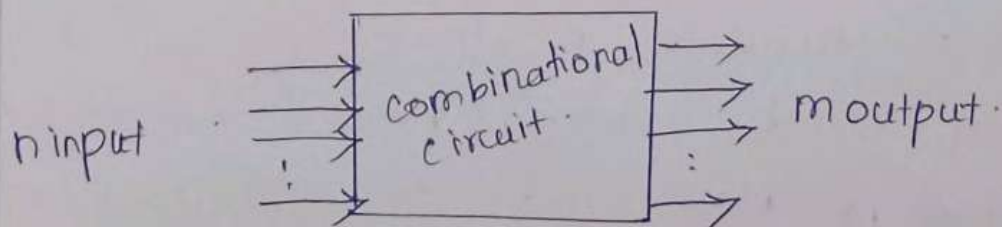 n input
combinational
circuit.
m output.